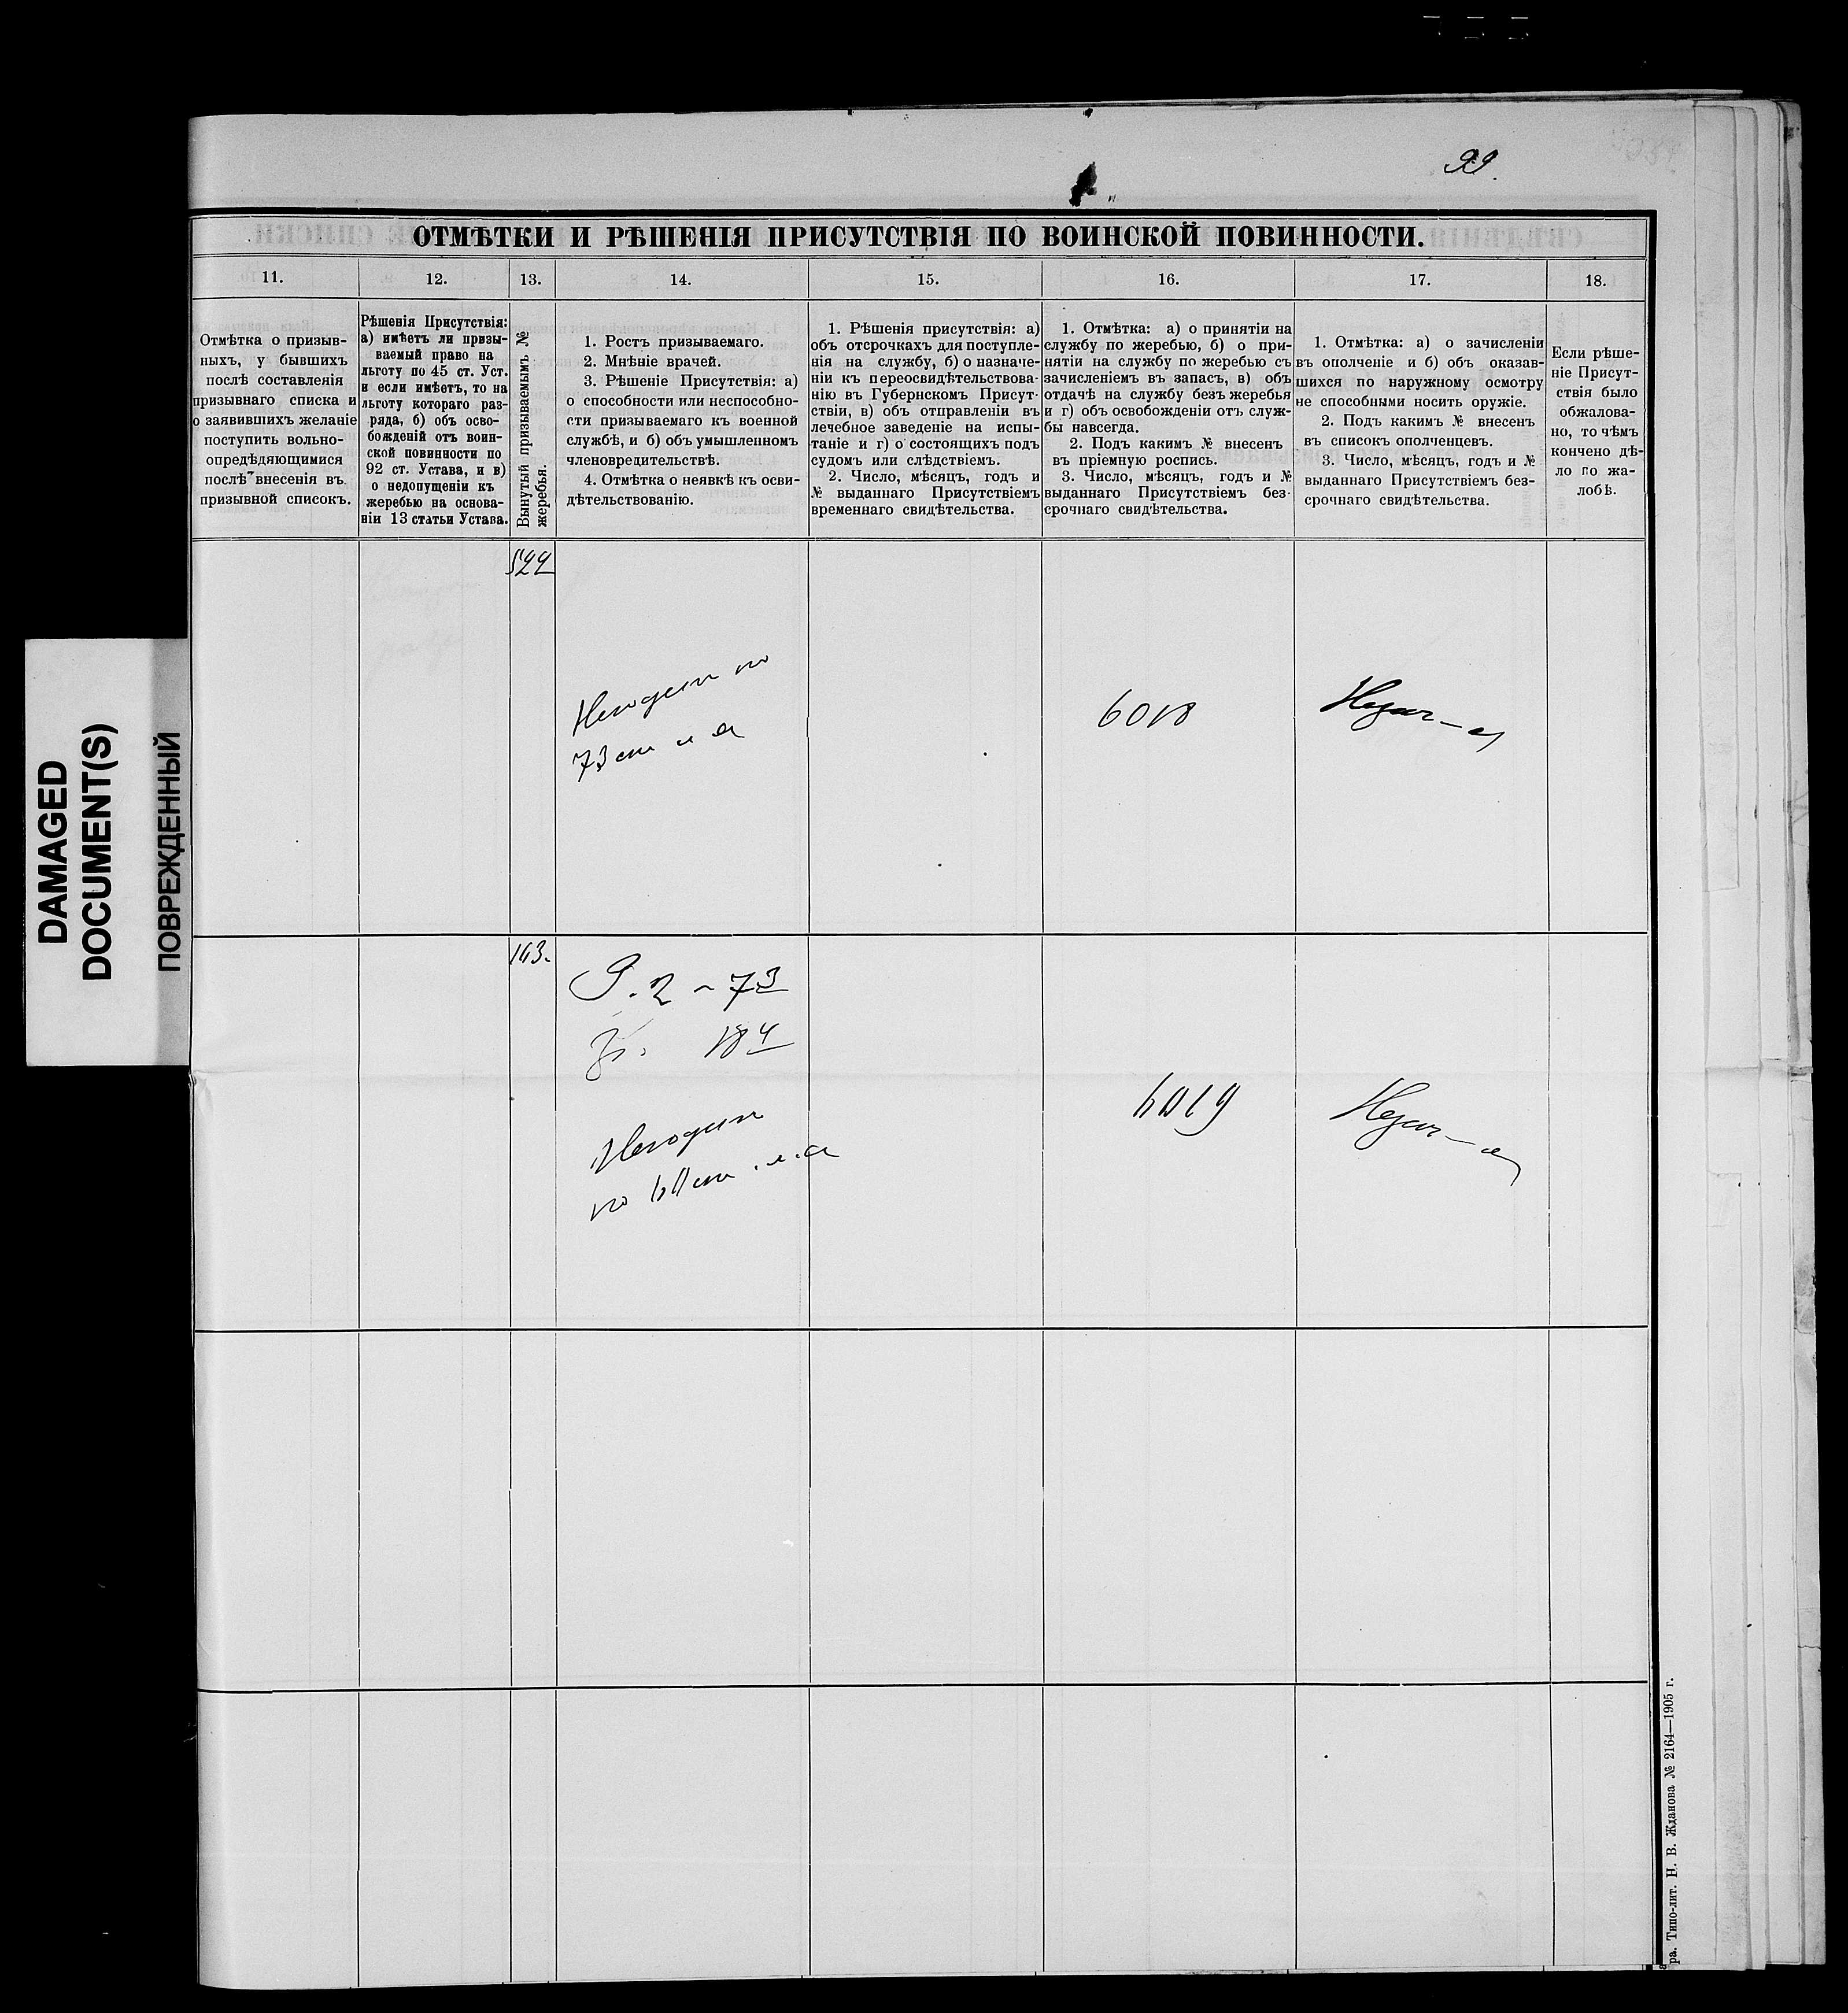 99.
ОТМѢТКИ И РѢШЕНІЯ ПРИСУТСТВІЯ ПО ВОИНСКОЙ ПОВИННОСТИ.
11.
12.
13.
14.
15.
16.
17.
18.
Отмѣтка о призыв-
ныхъ, у бывшихъ
послѣ составленія
призывнаго списка и
о заявившихъ желаніе
поступить вольно-
опредѣдяющимися
послѣ внесенія въ
призывной списокъ.
Рѣшенія Присутствія:
а) имѣетъ ли призы-
ваемый право на
льготу по 45 ст. Уст.
и если имѣетъ, то на
льготу котораго раз-
ряда, б) объ осво-
божденій отъ воин-
ской повинности по
92 ст. Устава, и в)
о недопущеніи къ
жеребью на основа-
ніи 13 статьи Устава.
Вынутый призываемымъ №
жеребья.
1. Ростъ призываемаго.
2. Мнѣніе врачей.
3. Рѣшеніе Присутствія: а)
о способности или неспособно-
сти призываемаго къ военной
службѣ, и б) объ умышленномъ
членовредительствѣ.
4. Отмѣтка о неявкѣ къ осви-
дѣтельствованію.
1. Рѣшенія присутствія: а)
объ отсрочкахъ для поступле-
нія на службу, б) о назначе-
ніи къ переосвидѣтельствова-
нію въ Губернскомъ Присут-
ствіи, в) объ отправленіи въ
лечебное заведеніе на испы-
таніе и г) о состоящихъ подъ
судомъ или слѣдствіемъ.
2. Число, мѣсяцъ, годъ и
№ выданнаго Присутствіемъ
временнаго свидѣтельства.
1. Отмѣтка: а) о принятіи на
службу по жеребью, б) о при-
нятіи на службу по жеребью съ
зачисленіемъ въ запасъ, в) объ
отдачѣ на службу безъ жеребья
и г) объ освобожденіи отъ служ-
бы навсегда.
2. Подъ какимъ № внесенъ
въ пріемную роспись.
3. Число, мѣсяцъ, годъ и №
выданнаго Присутствіемъ без-
срочнаго свидѣтельства.
1. Отмѣтка: а) о зачисленіи
въ ополченіе и б) объ оказав-
шихся по наружному осмотру
не способными носить оружіе.
2. Подъ какимъ № внесенъ
въ списокъ ополченцевъ.
3. Число, мѣсяцъ, годъ и №
выданнаго Присутствіемъ без-
срочнаго свидѣтельства.
Если рѣше-
ніе Присут-
ствія было
обжалова-
но, то чѣмъ
кончено дѣ-
ло по жа-
лобѣ.
522
Негоденъ по
73 ст л а
6018
143.
Р. 2 - 73
184
Негоденъ
по ст. л. а
6019
DAMAGED
DOCUMENT(S)
ПОВРЕЖДЕННЫЙ
ра. Типо-лит. Н. В. Жданова № 2164—1905 г.